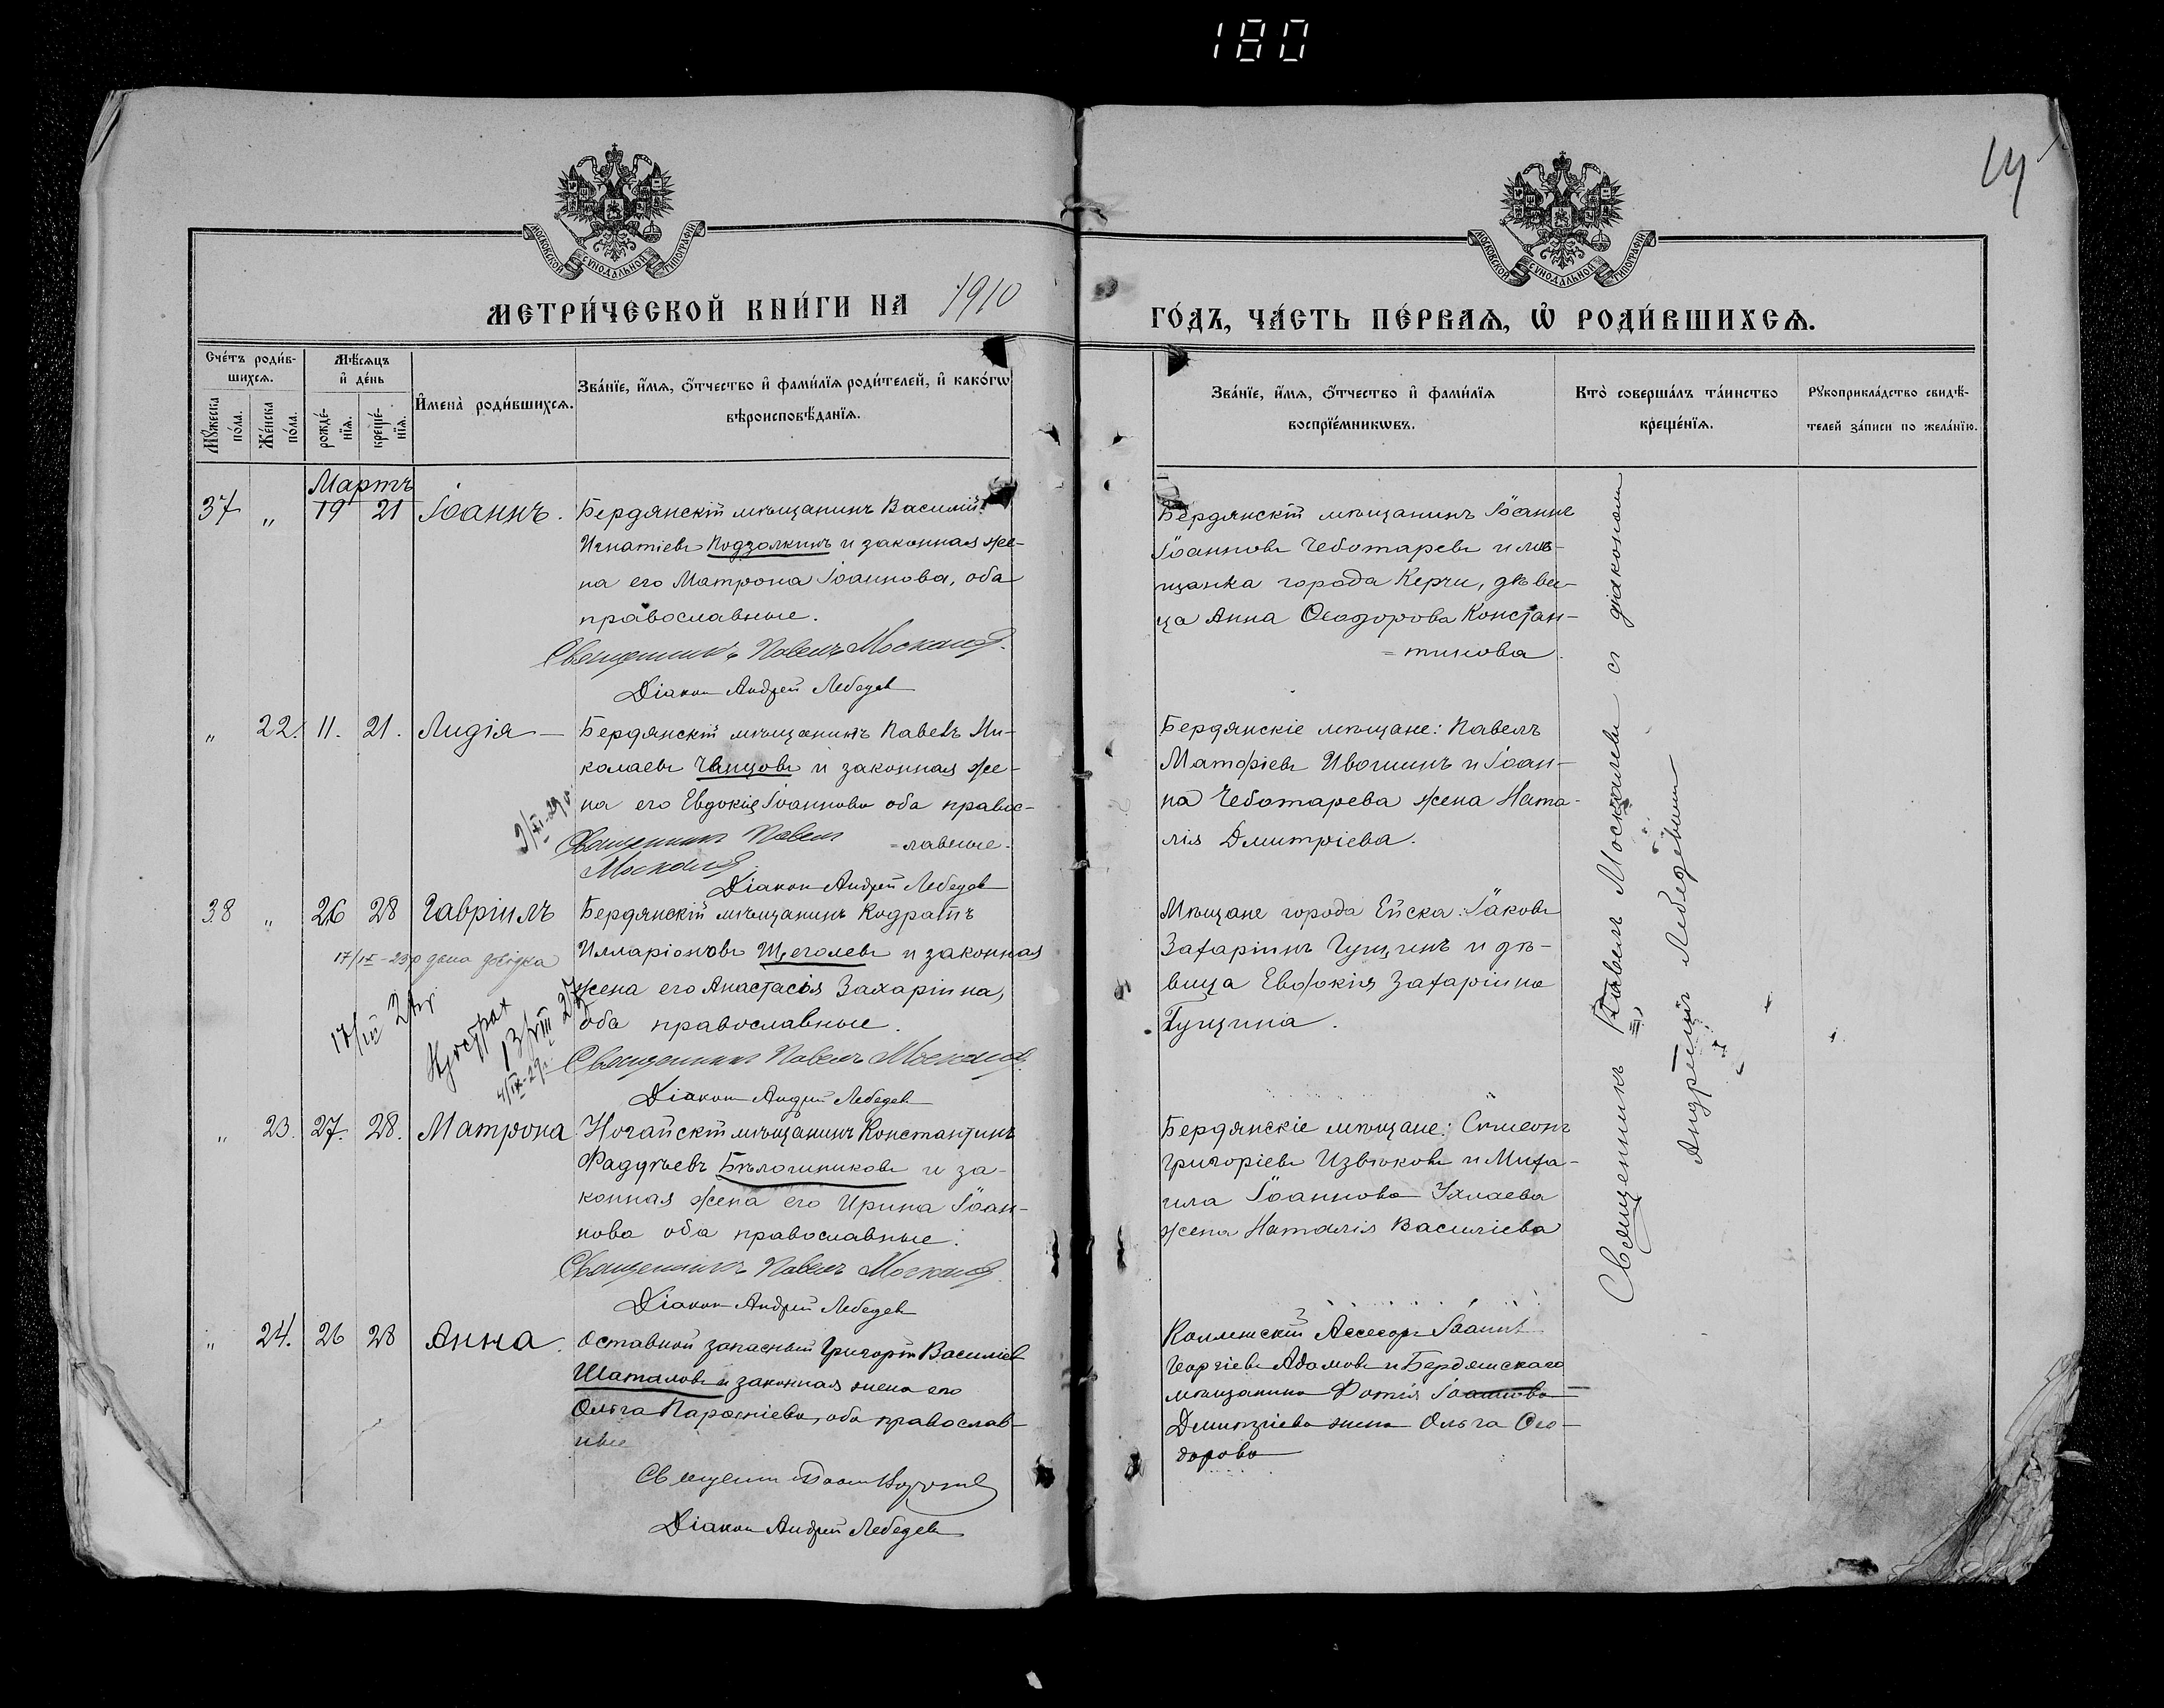 180
14
МОСКОВСКОЙ СѴНОДАЛЬНОЙ ТИПОГРАФІИ
МОСКОВСКОЙ СѴНОДАЛЬНОЙ ТИПОГРАФІИ
МЕТРИ́ЧЕСКОЙ КНИ́ГИ НА 1910
ГО́ДЪ, ЧА́СТЬ ПЕ́РВАѦ, Ѡ҆ РОДИ́ВШИХСѦ.
Сче́тъ роди́в-
шихсѧ.
Мꙋ́жеска
по́ла.
Же́нска
по́ла.
Мѣ́сѧцъ
и҆ де́нь
рожде́-
нїѧ.
креще́-
нїѧ.
И҆мена̀ роди́вшихсѧ.
Зва́нїе, и҆́мѧ, ѻ҆́тчество и҆ фами́лїѧ роди́телей, и҆ како́гѡ
вѣроисповѣ́данїѧ.
Зва́нїе, и҆́мѧ, ѻ҆́тчество и҆ фами́лїѧ
воспрїе́мникѡвъ.
Кто̀ соверша́лъ та́инство
креще́нїѧ.
Рꙋкоприкла́дство свидѣ́-
телей за́писи по жела́нїю.
Мартъ
37 „ 19 21 Іоаннъ.
Бердянскій мѣщанинъ Василій
Игнатіевъ Подзолкинъ и законная же-
на его Матрона Іоаннова, оба
православные.
Священникъ Павелъ Москалев.
Діакон Андрей Лебедев
Бердянскій мѣщанинъ Іоаннъ
Іоанновъ Чеботаревъ и мѣ-
щанка города Керчи, дѣви-
ца Анна Ѳеодорова Констан-
=тинова.
„ 22. 11. 21. Лидія —
Бердянскій мѣщанинъ Павелъ Ни-
колаевъ Чвицовъ и законная же-
на его Евдокія Іоаннова оба правос-
=лавные.
Священникъ Павелъ
Москалев.
Діакон Андрей Лебедев
Бердянскіе мѣщане: Павелъ
Матфіевъ Ивошинъ и Іоан-
на Чеботарева жена Ната-
лія Дмитріева.
38 „ 26 28 Гавріилъ
Бердянскій мѣщанинъ Кодратъ
Илларіоновъ Щеголевъ и законная
жена его Анастасія Захаріина,
оба православные.
Священникъ Павелъ Москалев.
Діакон Андрей Лебедев
дана довідка
13/VIII 27
4/IX-29
Мѣщане города Ейска: Іаковъ
Захаріинъ Гущинъ и дѣ-
вица Евдокія Захаріина
Гущина.
„ 23. 27. 28. Матрона
Ногайскій мѣщанинъ Константинъ
Фадѣевъ Бѣлошниковъ и за-
конная жена его Ирина Іоан-
нова оба православные.
Священникъ Павелъ Москалев.
Діакон Андрей Лебедев
Бердянскіе мѣщане: Симеонъ
Григоріевъ Извѣковъ и Миха-
ила Іоаннова
жена Наталія Василіева
„ 24. 26 28 Анна.
Оставной запасный Григорій Василіев
Шаталовъ и законная жена его
Ольга, оба православ-
ные
Діакон Андрей Лебедев
Коллежскій Ассесоръ Іоаннъ
Георгіевъ Адамовъ и Бердянскаго
мѣщанина Фотія Іоаннова
Дмитріева жена Ольга Ѳео-
дорова
Священникъ Павелъ Москалевъ съ діакономъ
Андреемъ Лебедевымъ